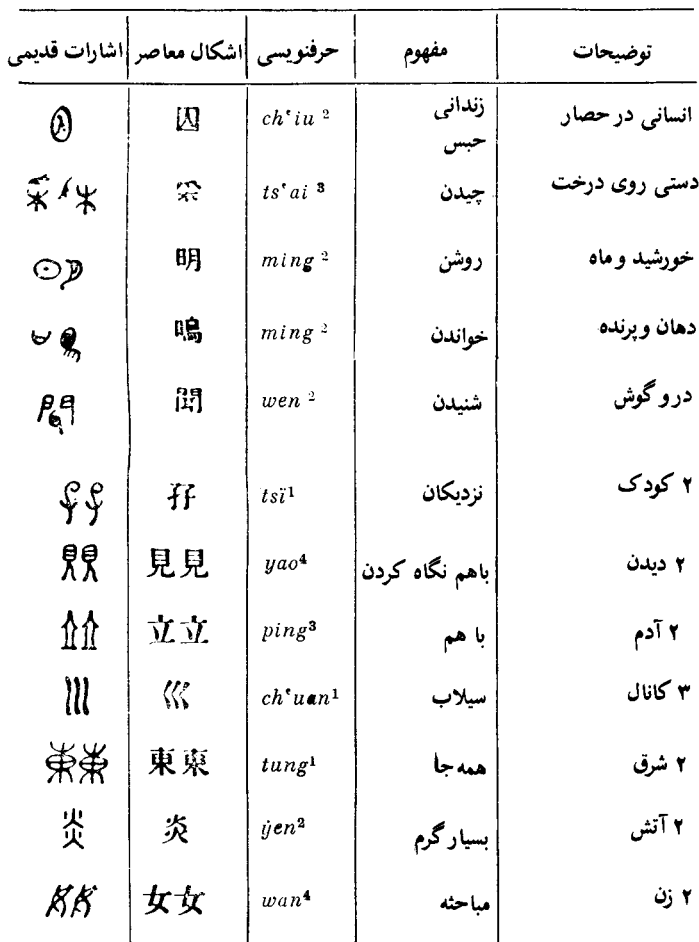 توضیحات مفهوم حرفنویسی اشکال معاصر اشارات قدیمی
انسانی در حصار زندانی ch‘iu ² 囚
حبس
دستی روی درخت چیدن ts‘ai ³
خورشید و ماه روشن ming ² 明
دهان و پرنده خواندن ming ² 鳴
در و گوش شنیدن wen ² 聞
۲ کودک نزدیکان tsï¹ 孖
۲ دیدن باهم نگاه کردن yao⁴ 見見
۲ آدم با هم ping³ 立立
۳ کانال سیلاب ch‘uan¹ 巛
۲ شرق همه‌جا tung¹ 東東
۲ آتش بسیار گرم yen² 炎
۲ زن مباحثه wan⁴ 女女